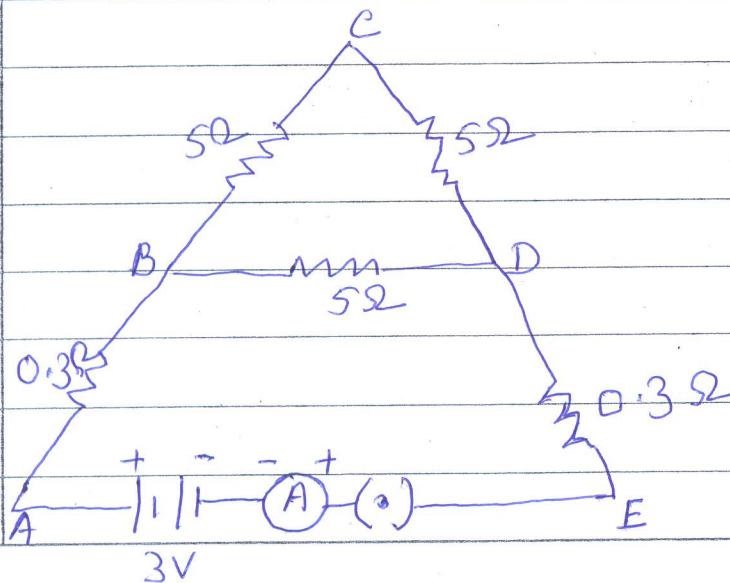 C
5Ω 5Ω
B D
5Ω
0.3Ω 0.3Ω
+ - - +
A (A) (•) E
3V